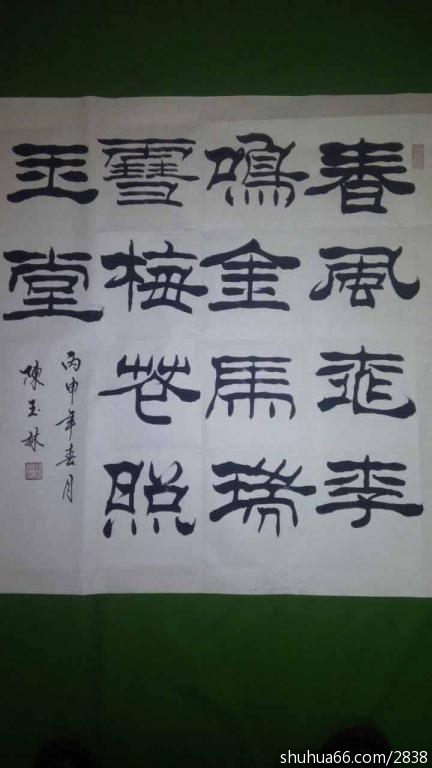 春風桃李
鳴金馬瑞
雪梅花照
玉堂
丙申年春月
陳玉林
shuhua66.com/2838